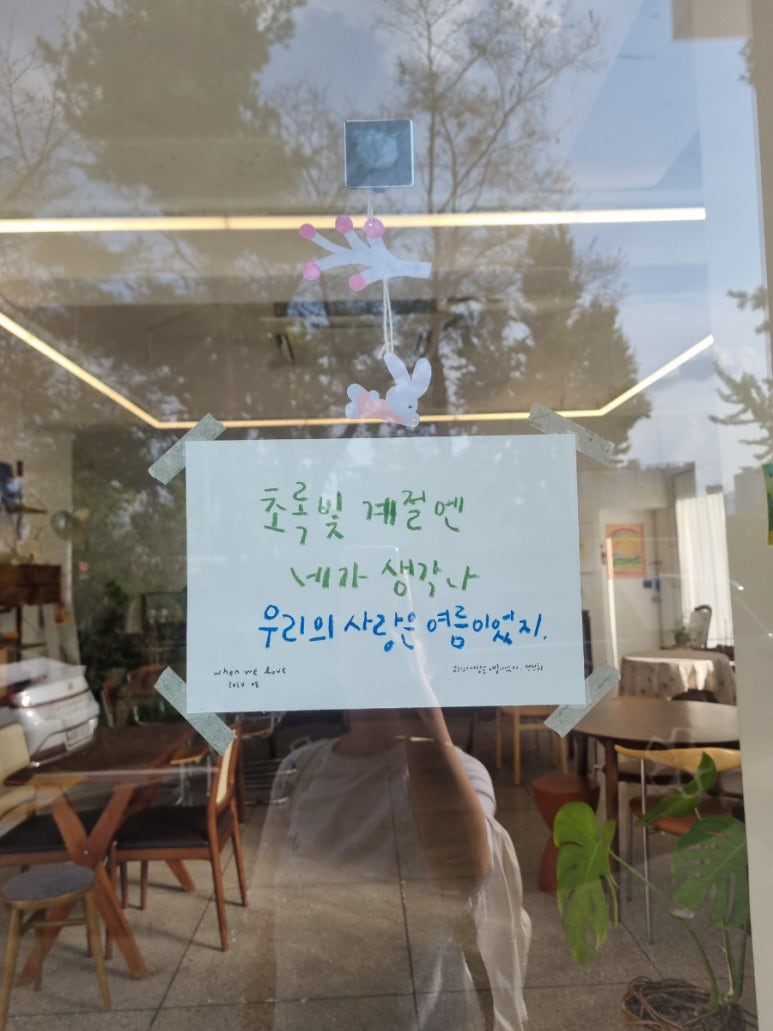 초록빛 계절엔
네가 생각나
우리의 사랑은 여름이었지.
when we love
2024. 08